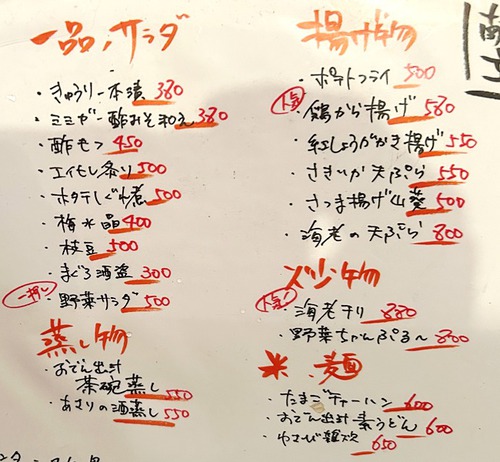 一品・サラダ
・きゅうり一本漬 380
・ミミガー酢みそ和え 380
・酢もつ 450
・エイヒレ炙り 500
・ホタテしぐれ煮 500
・梅水晶 400
・枝豆 500
・まぐろ酒盗 300
一押し ・野菜サラダ 500
蒸し物
・おでん出汁
茶碗蒸し 550
・あさりの酒蒸し 550
揚げ物
・ポテトフライ 500
人気 ・鶏から揚げ 580
・紅しょうがかき揚げ 550
・さきいか天ぷら 550
・さつま揚げ山葵 500
・海老の天ぷら 800
炒め物
人気! ・海老チリ 880
・野菜ちゃんぷる〜 800
米・麺
・たまごチャーハン 600
・おでん出汁素うどん 600
・わさび 650